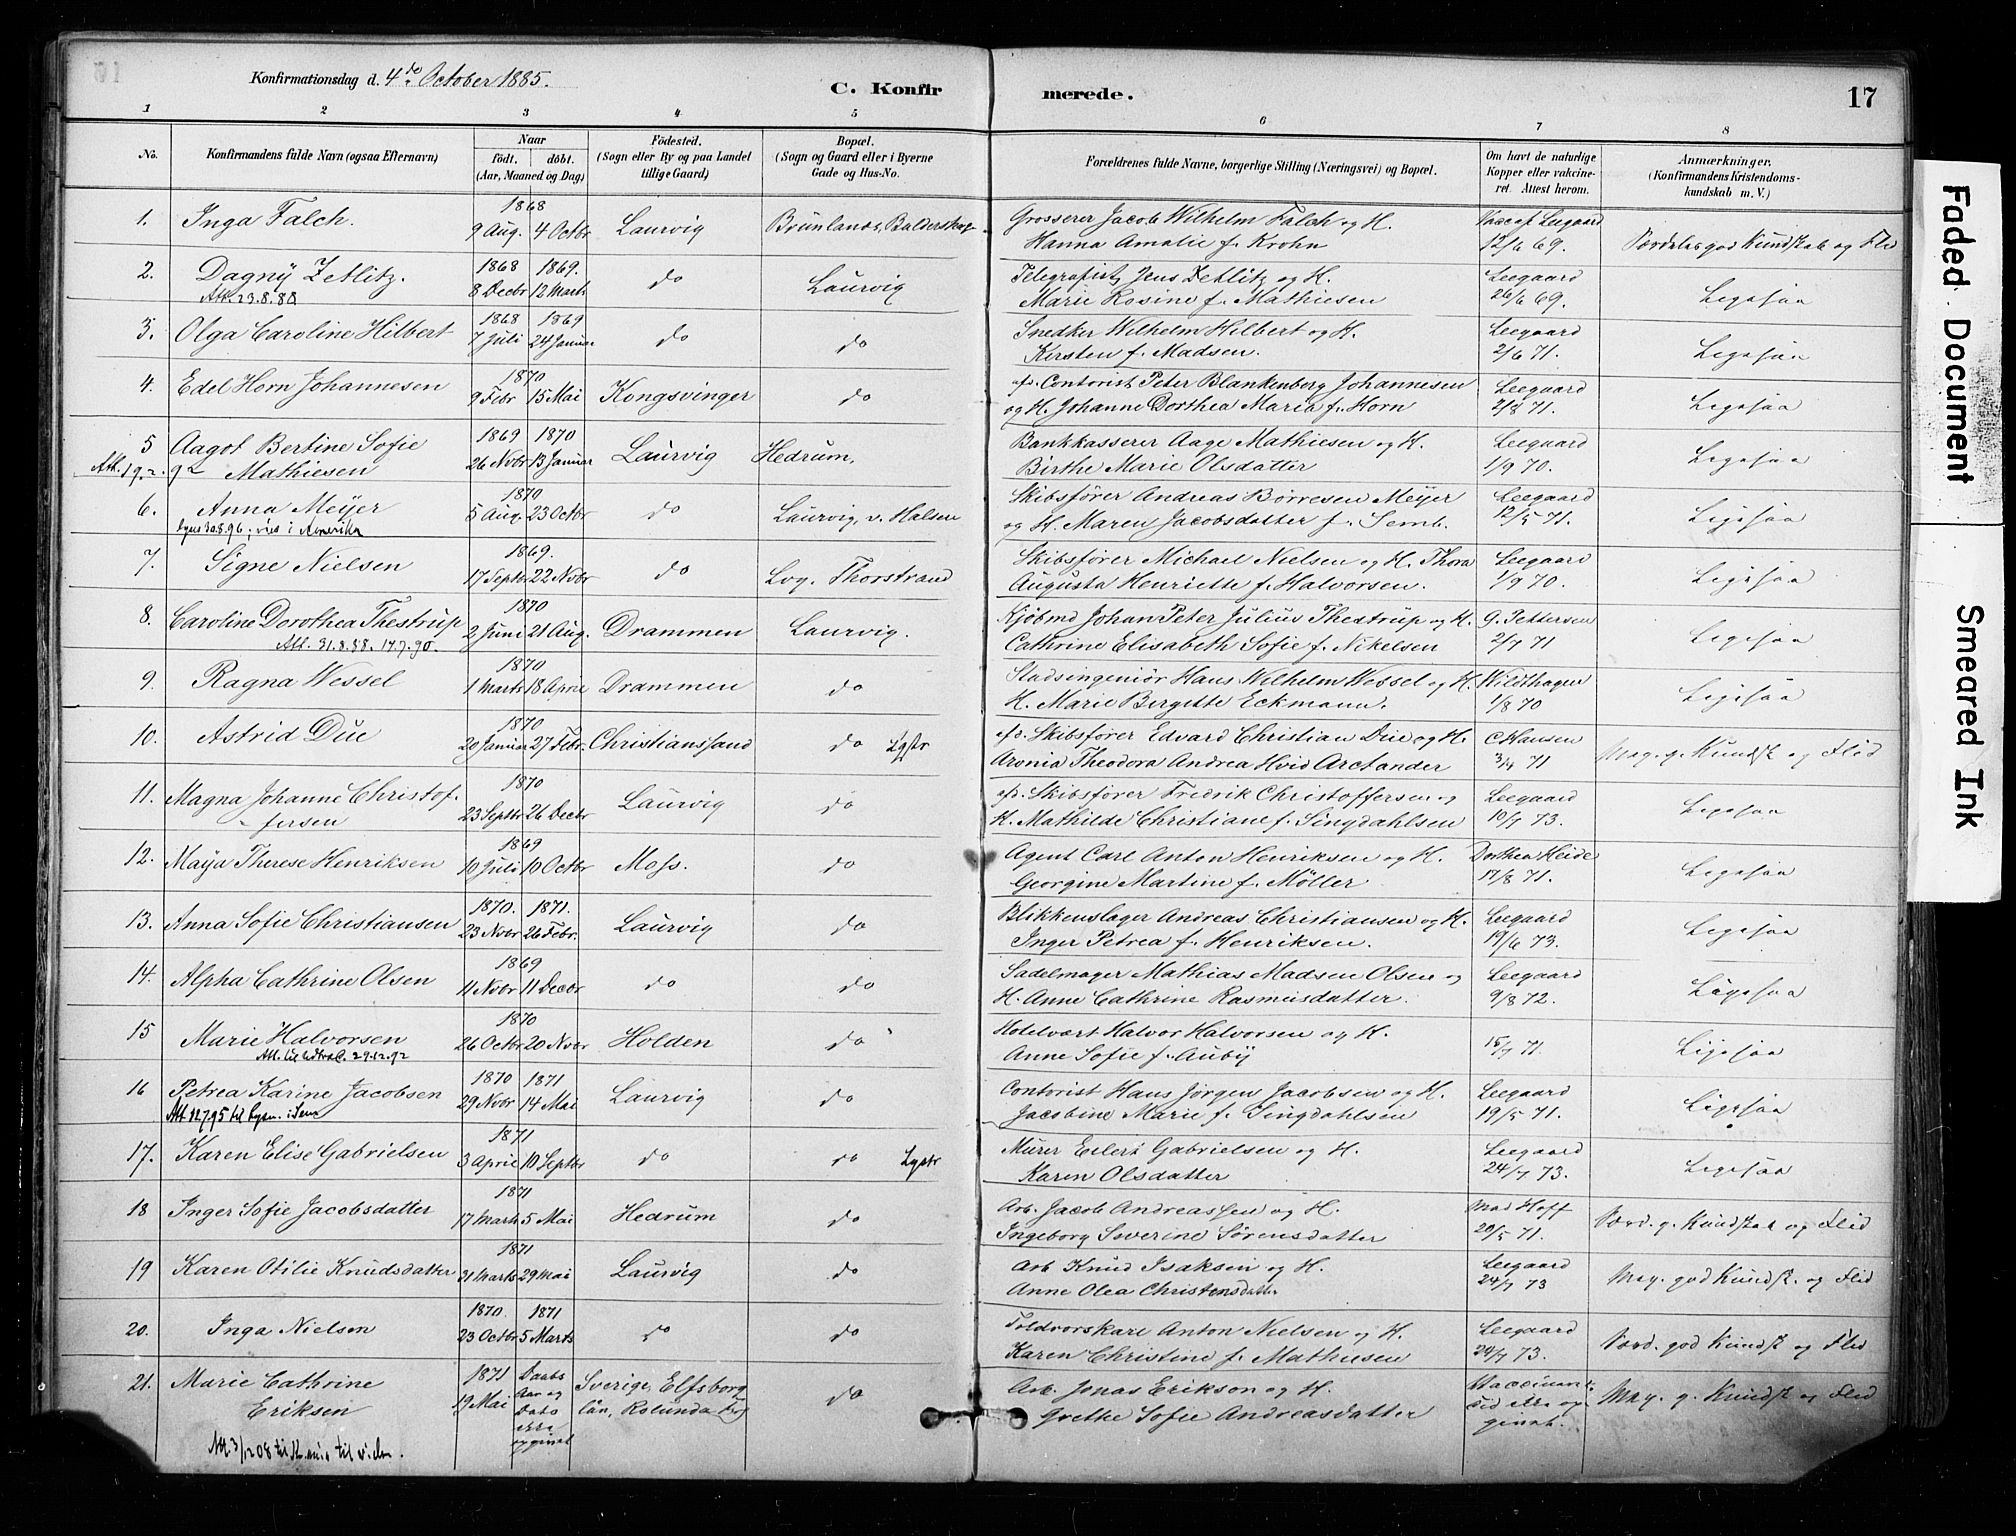 Konfirmationsdag d. 4de October 1885.
C. Konfirmerede.
17
1 2 3 4 5 6 7 8
No.
Konfirmandens fulde Navn (ogsaa Efternavn)
Naar
födt. döbt.
(Aar, Maaned og Dag)
Födested.
(Sogn eller By og paa Landet
tillige Gaard)
Bopæl.
(Sogn og Gaard eller i Byerne
Gade og Hus-No.
Forældrenes fulde Navne, borgerlige Stilling (Næringsvei) og Bopæl.
Om havt de naturlige
Kopper eller vakcine-
ret. Attest herom.
Anmærkninger.
(Konfirmandens Kristendoms-
kundskab m. V.)
1. Inga Falch. 1868 9 Aug. 4 Octbr Laurvig Brunlanæs, Grosserer Jacob Wilhelm Falch og H.
Hanna Amalie f. Krohn Vacc af Leegaard 12/6 69. Særdeles god Kundskab og Flid
2. Dagny Zetlitz. 1868 1869. 8 Decbr 12 Marts do Laurvig Telegrafist Jens Zetlitz og H.
Att. 23.8.88 Marie Rosine f. Mathiesen Leegaard 26/6 69. Ligesaa
3. Olga Caroline Hilbert 1868 1869 7 Juli 24 Januar do do Snedker Wilhelm Hilbert og H.
Kirsten f. Madsen. Leegaard 2/6 71. Ligesaa
4. Edel Horn Johannesen 1870 9 Febr 15 Mai Kongsvinger do afd. Contorist Peter Blankenborg Johannesen
og H. Johanne Dorthea Maria f. Horn Leegaard 2/8 71. Ligesaa
5 Aagot Bertine Sofie 1869 1870 26 Novbr 13 Januar Laurvig Hedrum, Bankkasserer Aage Mathiesen og H.
Att. 19.2.92 Mathiesen Birthe Marie Olsdatter Leegaard 1/9 70. Ligesaa
6. Anna Meyer 1870 5 Aug. 23 Octbr do Laurvig, v. Halsen Skibsfører Andreas Børresen Meyer
30.8.96, i Amerika og H. Maren Jacobsdatter f. Semb. Leegaard 12/5 71. Ligesaa
7. Signe Nielsen 1869. 17 Septbr 22 Novbr do Lvg. Thorstrand Skibsfører Michael Nielsen og H. Thora
Augusta Henriette f. Halvorsen. Leegaard 1/9 70. Ligesaa
8. Caroline Dorothea Thestrup 1870 2 Juni 21 Aug. Drammen Laurvig. Kjøbmd Johan Peter Julius Thestrup og H.
Att. 31.8.88. 14.7.90. Cathrine Elisabeth Sofie f. Nikelsen G. Pettersen 2/7 71 Ligesaa
9. Ragna Wessel 1870 1 Marts 18 April Drammen do Stadsingeniør Hans Wilhelm Wessel og H.
H. Marie Birgitte Eckmann. Wildthagen 1/8 70 Ligesaa
10. Astrid Due 1870 20 Januar 27 Febr. Christianssand do afd. Skibsfører Edvard Christian Due og H.
Aronia Theodora Andrea Hvid Arctander C Hansen 71 Meg. g. Kundsk og Flid
11. Magna Johanne Christof- 1870 23 Septbr 26 Decbr Laurvig do afd. Skibsfører Fredrik Christoffersen og
fersen H. Mathilde Christiane f. Singdahlsen Leegaard 10/7 73. Ligesaa
12. Maya Therese Henriksen 1869 10 Juli 10 Octbr Moss. do Agent Carl Anton Henriksen og H.
Georgine Martine f. Møller Dorthea Heide 17/8 71. Ligesaa
13. Anna Sofie Christiansen 1870. 1871. 23 Novbr 26 Febr. Laurvig do Blikkenslager Andreas Christiansen og H.
Inger Petrea f. Henriksen. Leegaard 19/6 73. Ligesaa
14. Alpha Cathrine Olsen 1869 11 Novbr 11 Decbr do do Sadelmager Mathias Madsen Olsen og
H. Anne Cathrine Rasmusdatter. Leegaard 9/8 72. Ligesaa
15 Marie Halvorsen 1870 26 Octbr 20 Novbr Holden do Hotelvært Halvor Halvorsen og H.
29.12.92 Anne Sofie f. Auby 15/7 71. Ligesaa
16 Petrea Karine Jacobsen 1870 1871 29 Novbr 14 Mai Laurvig do Contorist Hans Jørgen Jacobsen og H.
Att 12795 til Jacobine Marie f. Singdahlsen Leegaard 19/5 71. Ligesaa
17. Karen Elise Gabrielsen 1871 3 April 10 Septbr do do Murer Eilert Gabrielsen og H.
Karen Olsdatter Leegaard 24/7 73. Ligesaa
18 Inger Sofie Jacobsdatter 1871 17 Marts 5 Mai Hedrum do Arb. Jacob Andreassen og H.
Ingeborg Severine Sørensdatter Mad Hoff 20/5 71. Særd. g. Kundskab og Flid
19 Karen Otilie Knudsdatter 1871 31 Marts 29 Mai Laurvig do Arb Knud Isaksen og H.
Anne Olea Christensdatter Leegaard 24/7 73 Meg. god Kundsk. og Flid
20. Inga Nielsen 1870. 1871 23 Octbr 5 Marts do do Toldvorskarl Anton Nielsen og H.
Karen Christine f. Mathiesen Leegaard 24/7 73. Særd. god Kundsk og Flid
21. Marie Cathrine 1871 19 Mai Daabs Aar og Dato ikke opgivet Sverige, Elfsborg do Arb. Jonas Erikson og H.
Eriksen län, Rolunda Grethe Sofie Andreasdatter Vaccinat. tid ikke opgivet. Meg. g. Kundsk og Flid
Faded Document Smeared Ink